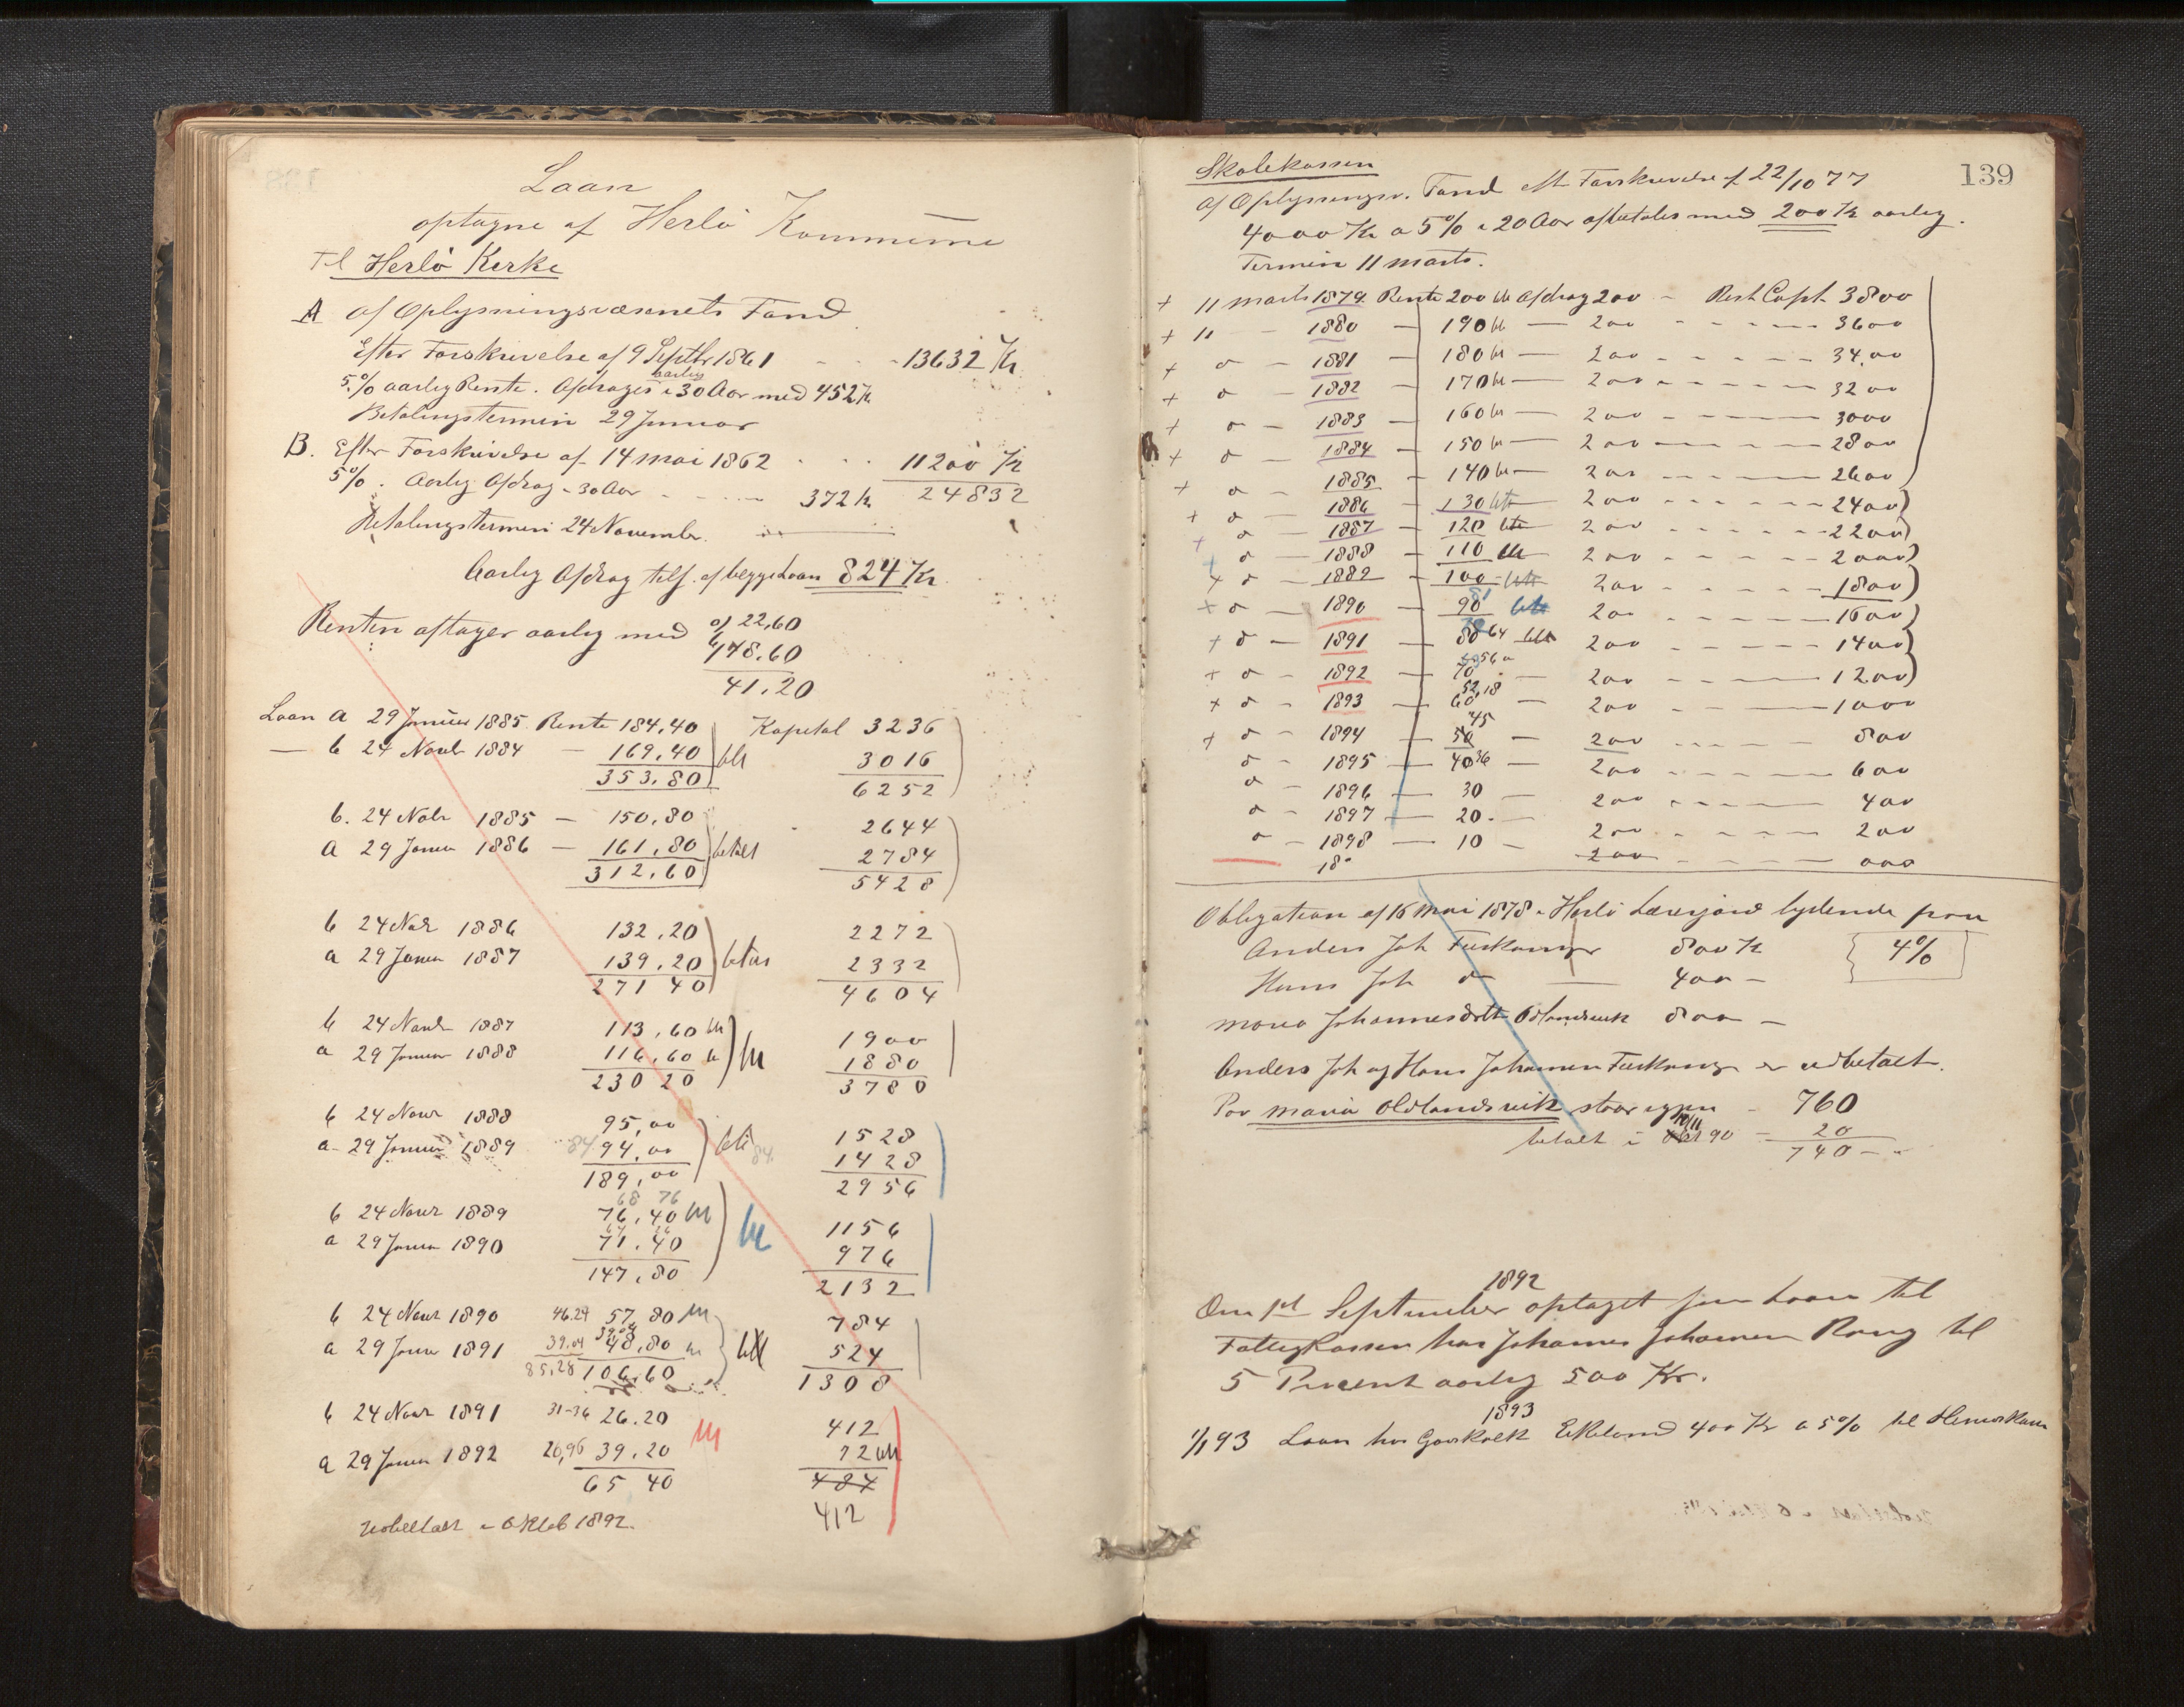 Laan
optagne af Herlö Kommune
Til Herlö Kirke
A af Oplysningsvæsenets Fond
Efter Forskrivelse af 9 Septbr 1861 - - - 13632 Kr
5% aarlig Rente. Afdrages aarlig i 30 Aar med 452 Kr
Betalingstermin 29 Januar
B. Efter Forskrivelse af 14 Mai 1862 . . . 11200 Kr
5%. Aarlig Afdrag i 30 Aar - - - 372 kr 24832
Betalingstermin 24 Novembr.
Aarlig Afdrag tils. af begge Laan 824 Kr
Renten aftager aarlig med a/ 22,60
b/ 18.60
41.20
Laan a 29 Januar 1885 Rente 184,40 Kapital 3236
— b 24 Novbr 1884 — 169,40 bet 3016
353,80 6252
b. 24 Nobr 1885 — 150,80 2644
a 29 Januar 1886 — 161,80 betalt 2784
312,60 5428
b 24 Nobr 1886 132,20 2272
a 29 Januar 1887 139,20 betalt 2332
271 40 4604
b 24 Novbr 1887 113,60 bt 1900
a 29 Januar 1888 116,60 bt 1880
230 20 3780
b 24 Novbr 1888 95,00 1528
a - 29 Januar 1889 84 94,00 bet 84 1428
189,00 2956
68 76
b 24 Novbr 1889 76,40 bt 1156
a 29 Januar 1890 71.40 bt 976
147,80 2132
b 24 Novbr 1890 46.24 57,80 bt 784
a 29 Januar 1891 39.04 48,80 bt 524
85,28 106,60 1308
b 24 Novbr 1891 31-36 26.20 412
a 29 Januar 1892 20,96 39,20 bt 72
65 40 484
412
Udbetalt i Oktob 1892.
139
Skolekassen
af Oplysningsv. Fond eft Forskrivelse af 22/10 77
4000 Kr a 5% i 20 Aar afbetales med 200 Kr aarlig.
Termin 11 marts.
+ 11 marts 1879. Rente 200 bt Afdrag 200 - Rest Capt. 3800
+ 11 - 1880 — 190 bt — 200 - - - - 3600
+ d - 1881 — 180 bt — 200 - - - - 34,00
+ d - 1882 — 170 bt — 200 - - - - 3200
+ d - 1883 — 160 bt — 200 - - - - 3000
+ d - 1884 — 150 bt — 200 - - - - 2800
+ d - 1885 — 140 bt — 200 - - - - 2600
+ d - 1886 — 130 bt — 200 - - - - 2400
+ d - 1887 — 120 bt — 200 - - - - 2200
+ d - 1888 — 110 bt — 200 - - - - 2000
+ d - 1889 — 100 bt — 200 - - - - 1800
+ d - 1890 — 90 81 bt 200 - - - - 1600
+ d - 1891 — 80 64 bt 200 - - - - 1400
+ d - 1892 — 70 56 — 200 - - - - 1200
+ d - 1893 — 60 52,18 — 200 - - - - 1000
+ d - 1894 — 50 45 — 200 - - - - 800
d - 1895 — 40 36 — 200 - - - - 600
d - 1896 — 30 — 200 - - - - 400
d - 1897 — 20. — 200 - - - - 200
d - 1898 — 10 — 200 - - - - 000
18"
Obligation af 16 Mai 1878 i Herlö Lærerjord lydende paa
Anders Joh Fuskanger 800 Kr 4%
Hans Joh d — 400 —
Maria Johannesdtt Oldlandsvik 800 —
Anders Joh og Hans Johannen Fuskanger er udbetalt.
Paa Maria Oldlandsvik staar igjen - 760
betalt i Okt 10/11 90 - 20
740 - -
1892
Om 1st September optaget som Laan til
Fattigkassen hos Johannes Johannen Rong til
5 Procent aarlig 500 Kr.
1893
1/1 93 Laan hos Ekeland 400 Kr a 5% til